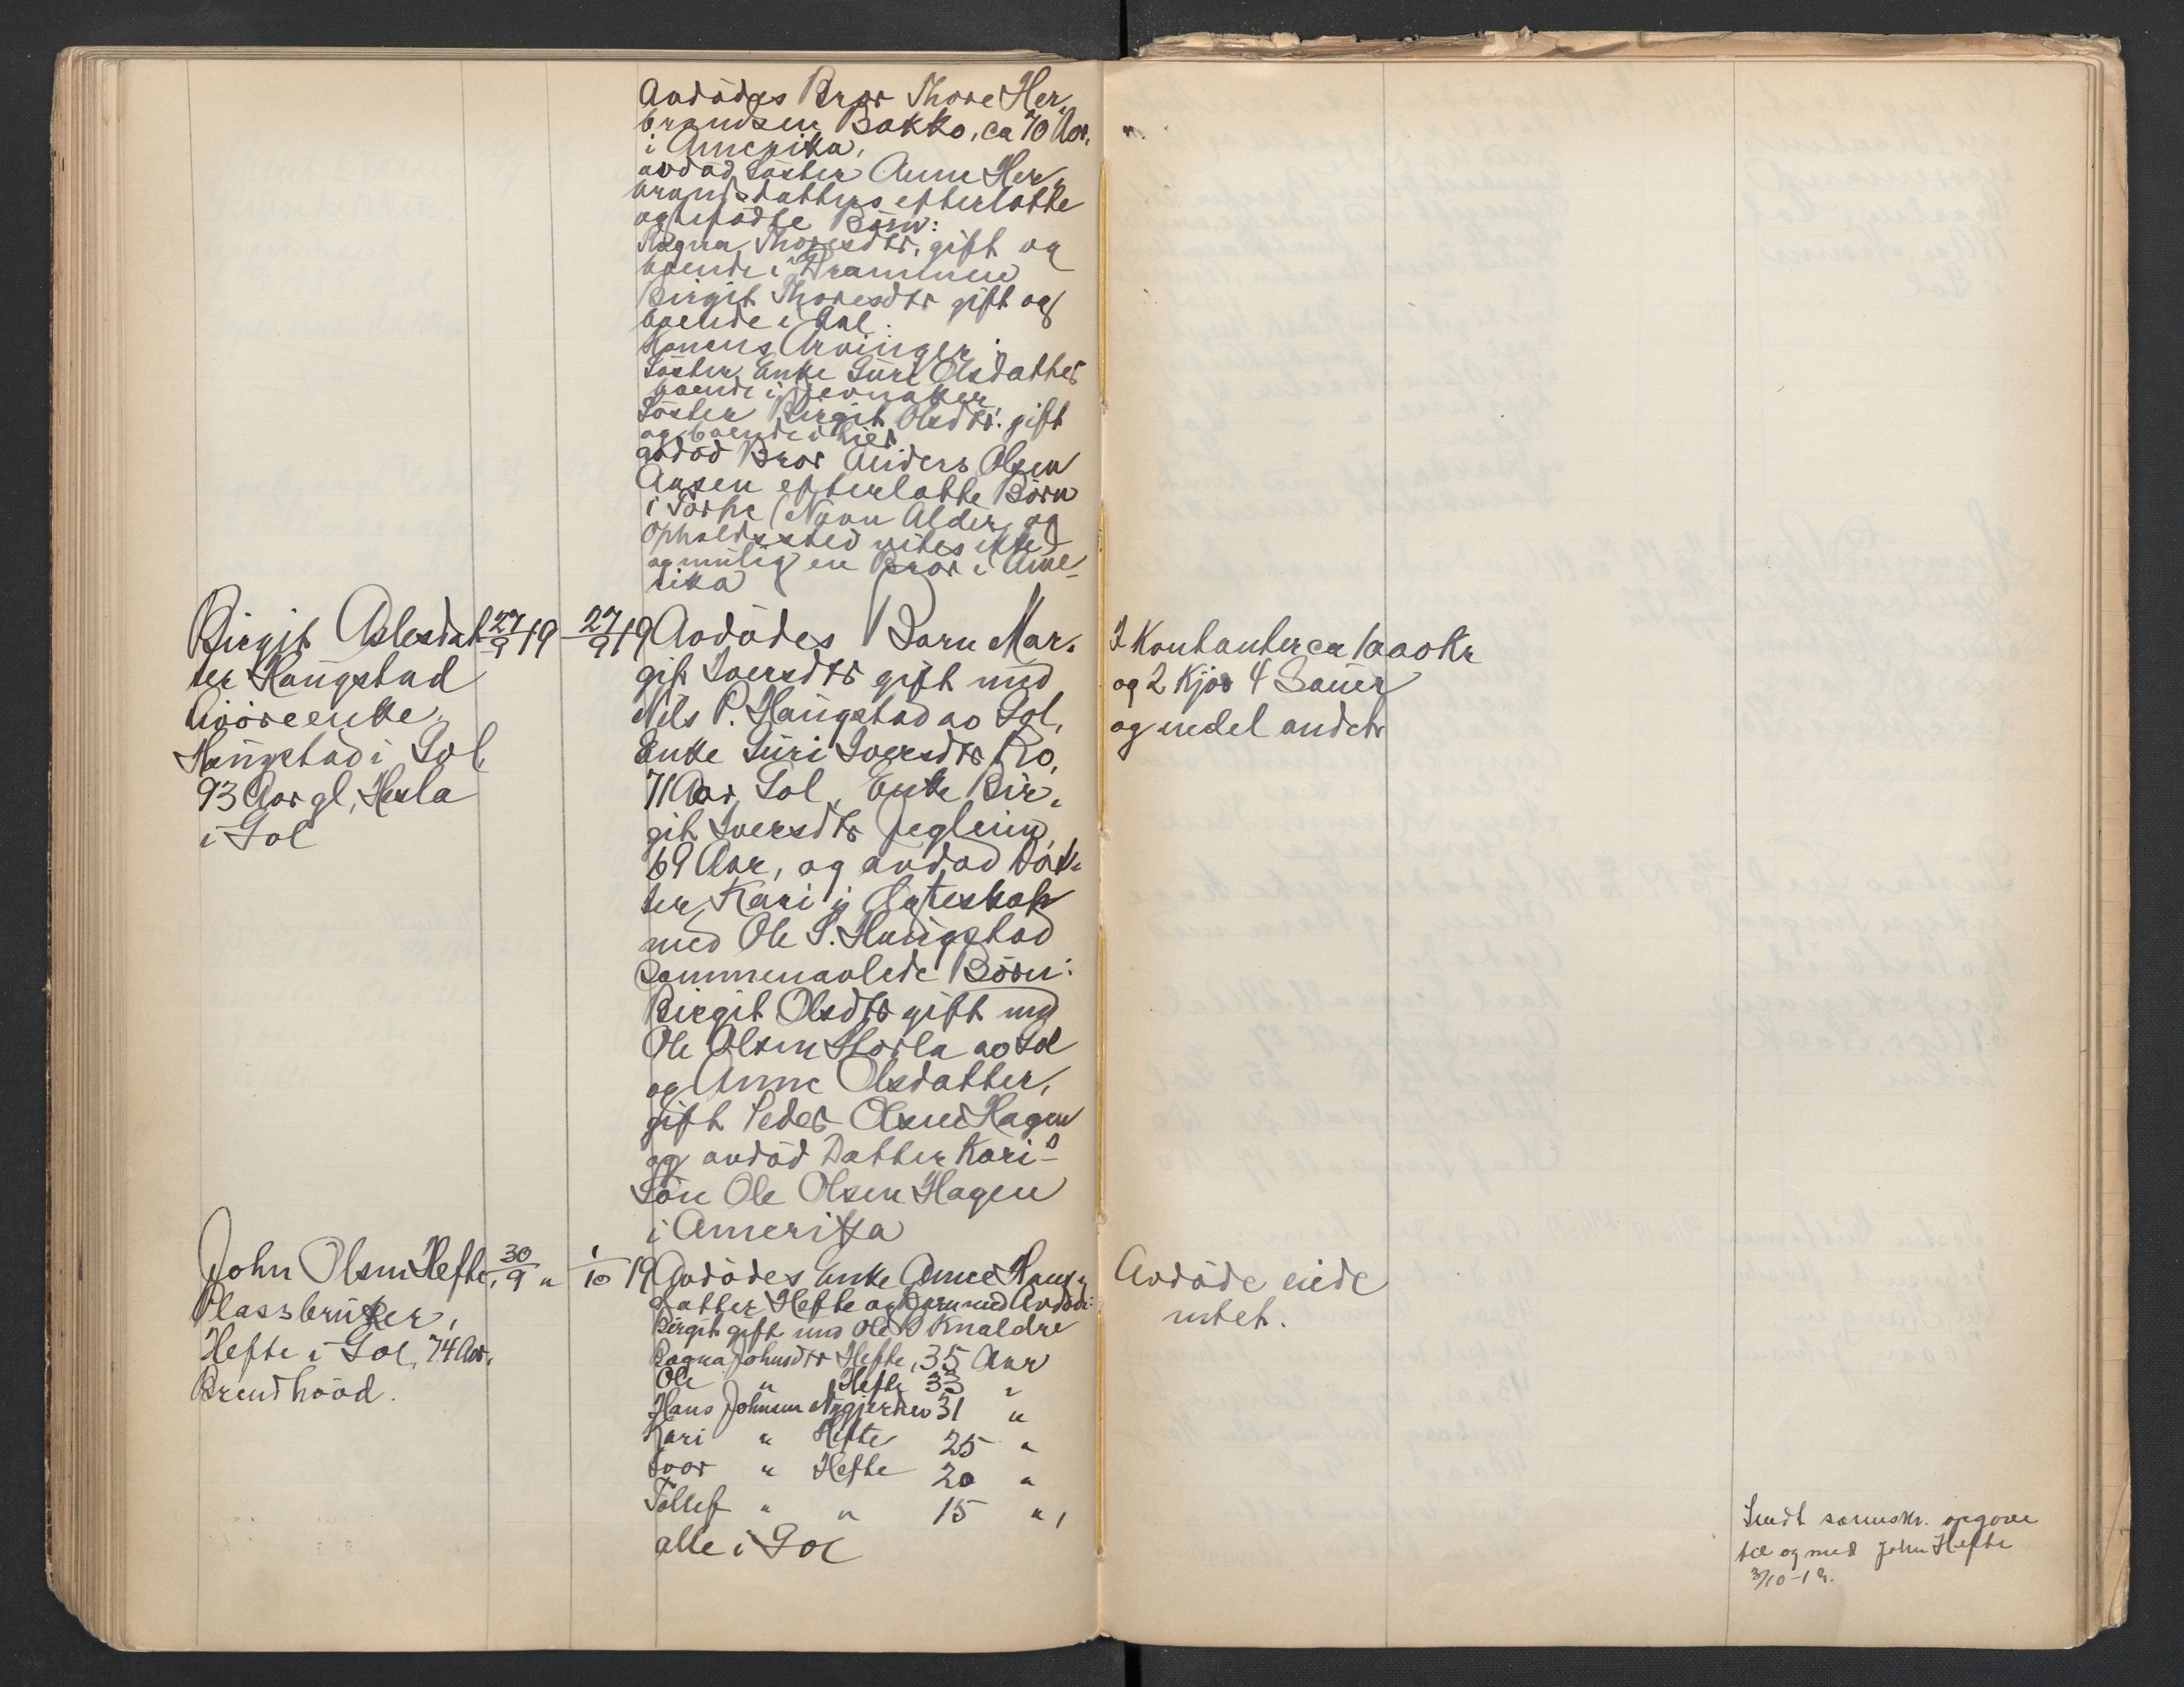 Avdødes Bror Thore Her-
brandsen Bakko, ca 70 Aar,
i Amerika,
avdød Søster Anne Her-
brandsdatters efterlatte
egtefødte Børn:
Ragna Thoresdtr, gift og
boende i Drammen
Birgit Thoresdtr gift og
boende i Aal.
Konens Arvinger:
Søster, Enke Guri Olsdatter
boende i Jevnaker
Søster Birgit Olsdtr. gift
og boende i Lier
avdød Bror Anders Olsen
Aasen efterlatte Børn
i Torpe (Navn Alder og
Opholdssted vites ikke)
og mulig en Bror i Ame-
rika
Birgit Aslesdat- 27/9 19 27/9 19 Avdødes Barn Mar-
ter Haugstad
Gaardenke,
Haugstad i Gol
93 Aar gl, Hesla
i Gol
git Iversdtr gift med
Nils P. Haugstad av Gol,
Enke Guri Iversdtr Ro,
71 Aar, Gol, Enke Bir-
git Iversdtr Jegleim,
69 Aar, og avdød Dat-
ter Kari i Egteskap
med Ole S. Haugstad
sammenavlede Børn:
Birgit Olsdtr gift med
Ole Olsen Storla av Gol
og Anne Olsdatter,
gift Peder Olsen Hagen
og avdød Datter Kari's
Søn Ole Olsen Hagen
i Amerika
I Kontanter ca 1000 Kr
og 2 Kjør 4 Sauer
og endel andet
John Olsen Hefte, 30/9 " 1/10 19 Avdødes Enke Anne Hans-
Plassbruker,
Hefte i Gol, 74 Aar.
datter Hefte og Barn med Avdøde:
Birgit gift med Ole Knaldre
Ragna Johnsdtr Hefte, 35 Aar
Ole " Hefte 33 "
Hans Johnsen Nygjerdet 31 "
Kari " Hefte 25 "
Ivar " Hefte 20 "
Tollef " " 15 ",
alle i Gol
Avdøde eiede
intet.
Sendt opgave
til og med John Hefte
3/10-19.